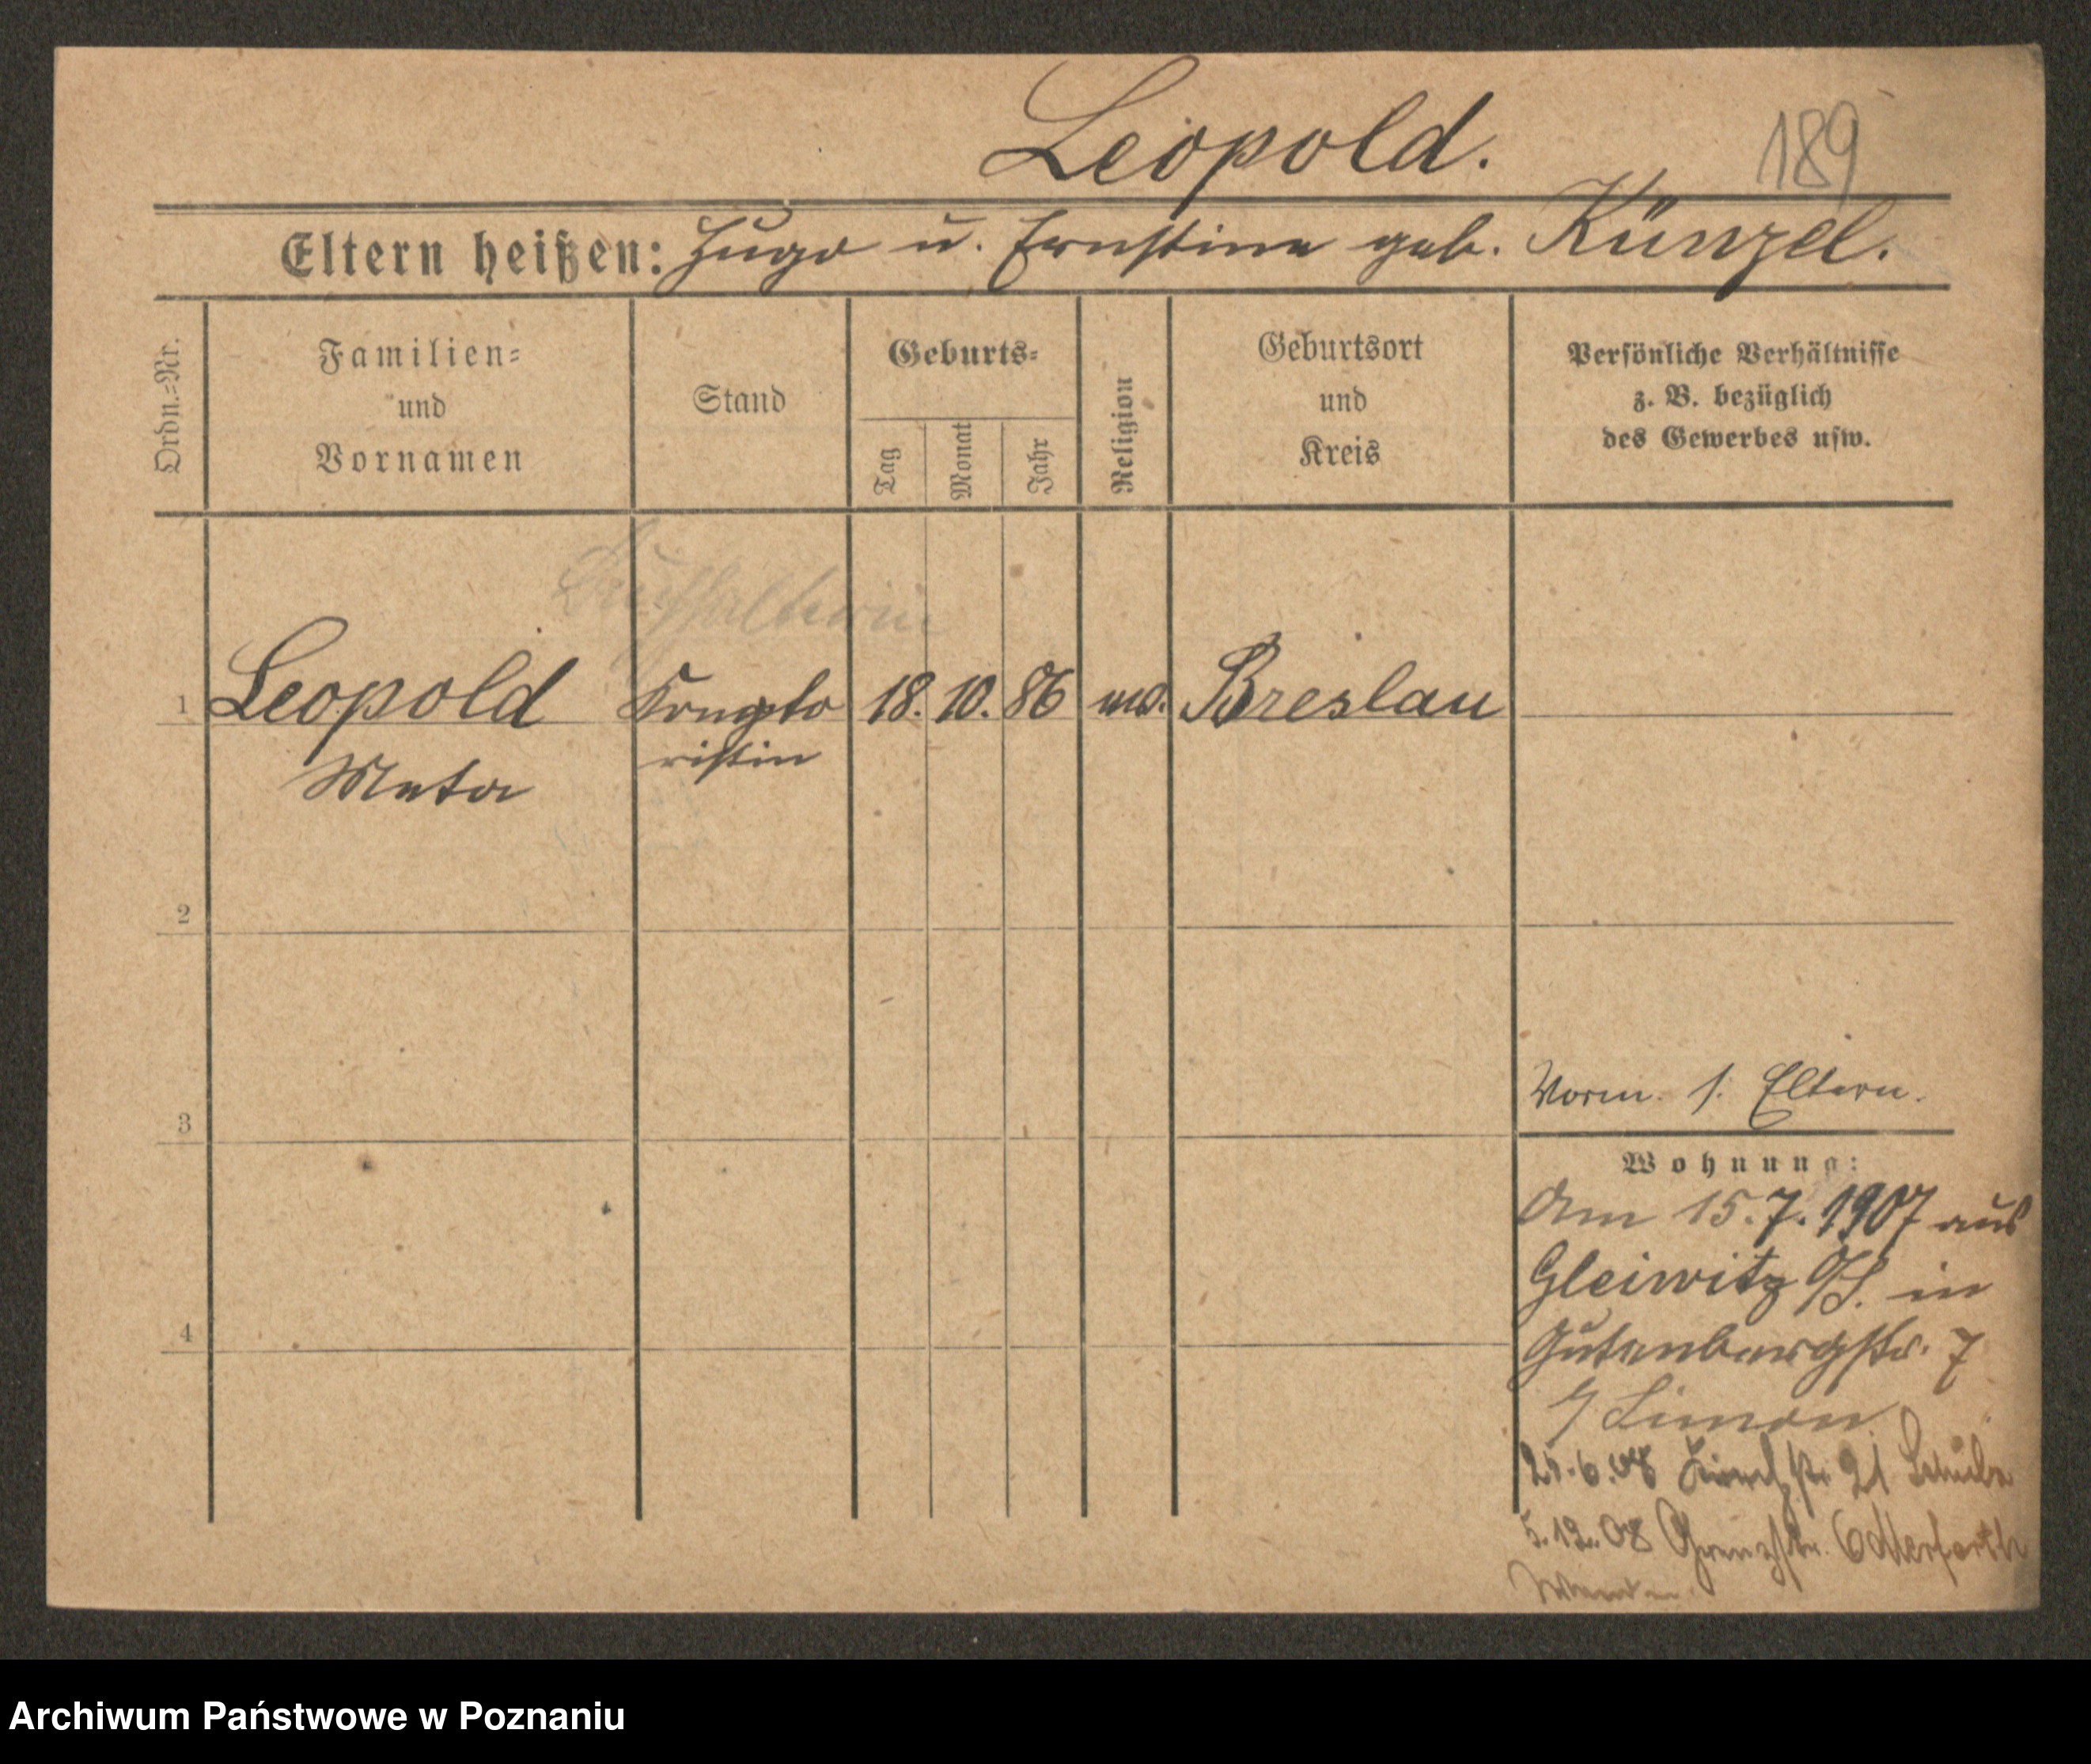 Leopold.
189
Eltern heißen: Hugo u. Ernstine geb. Künzel.
Ordn.=Nr.
Familien=
und
Vornamen
Stand
Geburts=
Tag
Monat
Jahr
Religion
Geburtsort
und
Kreis
Persönliche Verhältnisse
z. B. bezüglich
des Gewerbes usw.
Buchhalterin
1 Leopold Kompto 18. 10. 86 Breslau
Meta ristin
2
3
Vorm. s. Eltern.
Wohnung:
Am 15.7.1907 aus
Gleiwitz O/S. in
4
Gutenbergstr. 7
b/ Simon
25.6.08 21
5.12.08 Grenzstr. Odterfarth
Archiwum Państwowe w Poznaniu